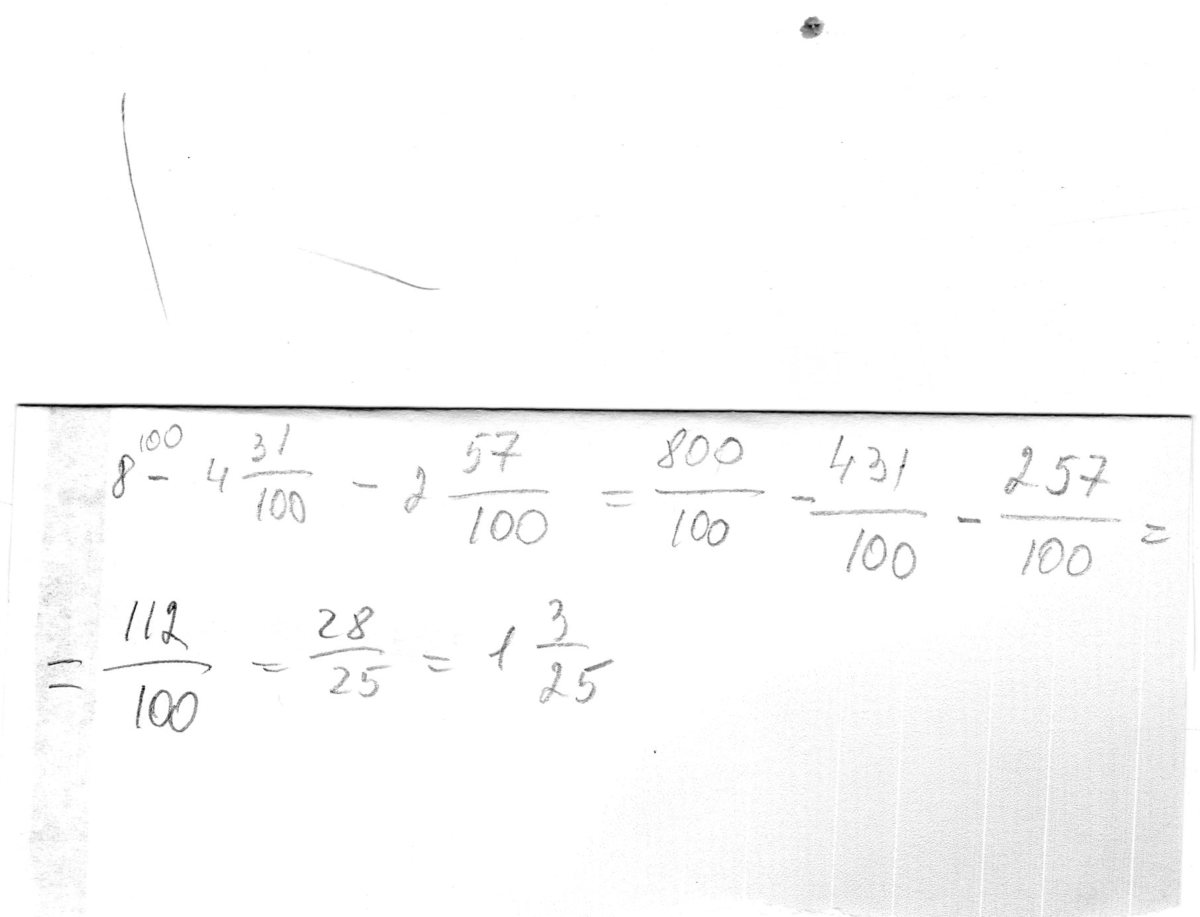 8^100 - 4 31/100 - 2 57/100 = 800/100 - 431/100 - 257/100 =
= 112/100 = 28/25 = 1 3/25